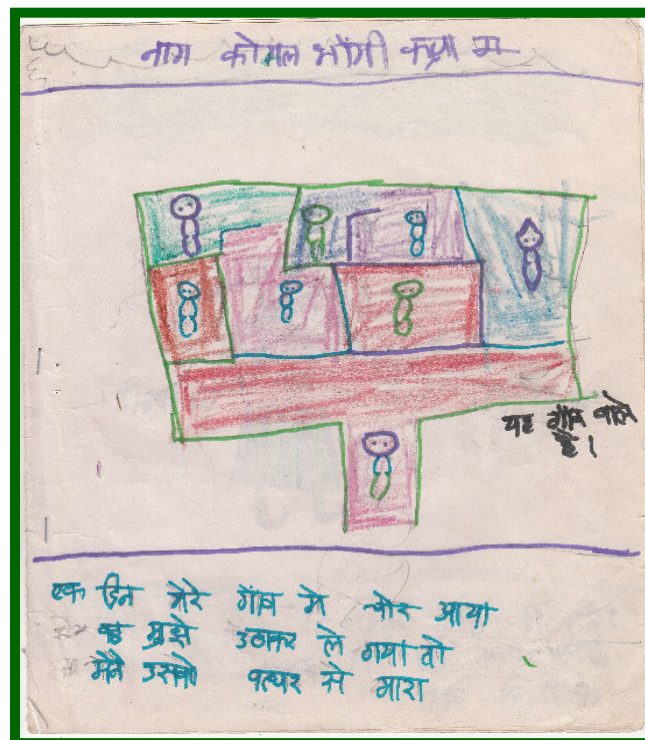 नाम कोमल भोंमी कक्षा म
यह गाँव वाले
है।
एक दिन मेरे गाँव मे चोर आया
वह मुझे उठाकर ले गया तो
मैने उसको पत्थर से मारा